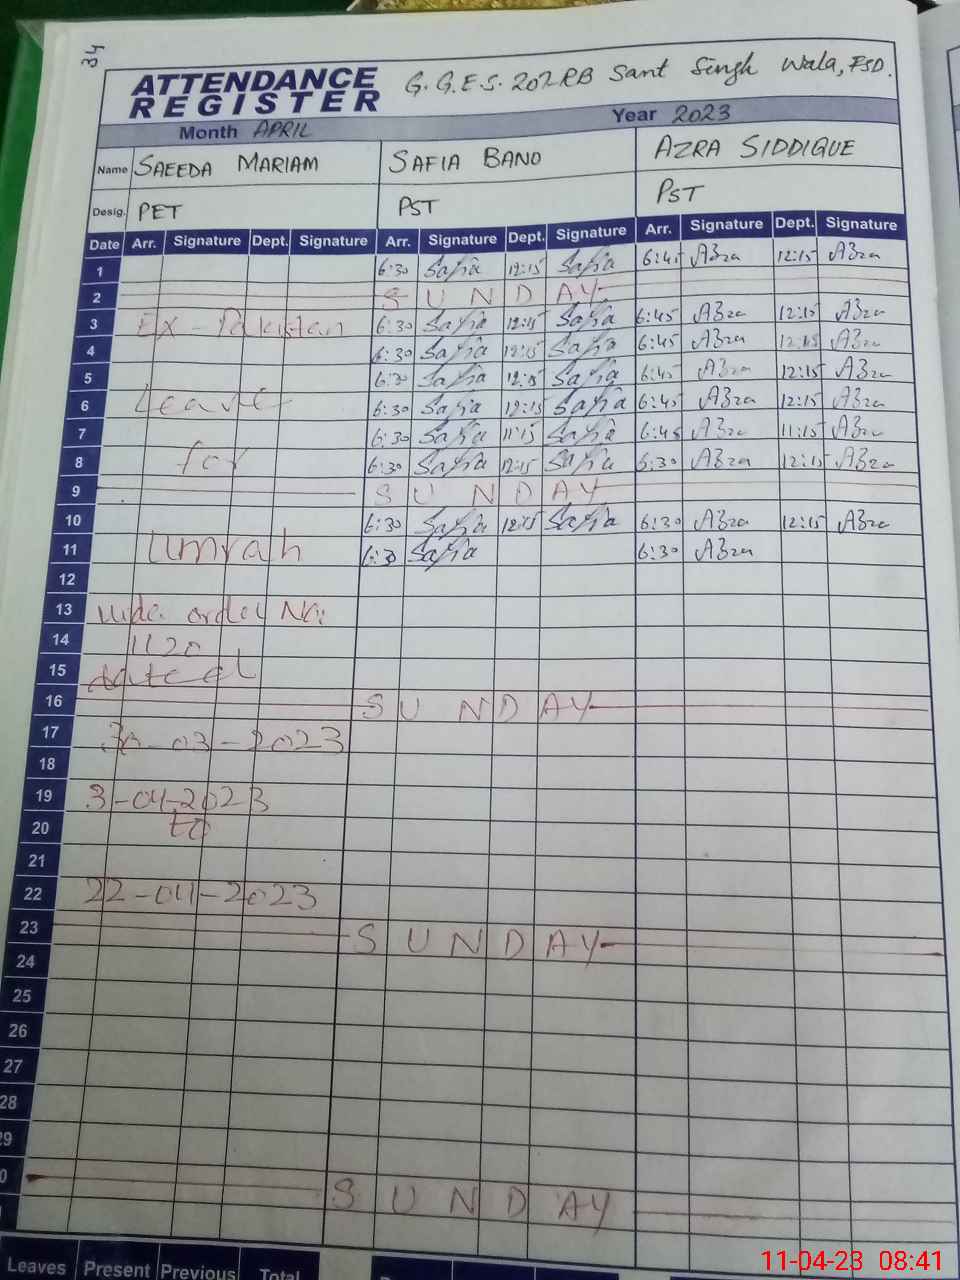 34
ATTENDANCE REGISTER G.G.E.S. 202RB Sant Singh Wala, FSD.
Month APRIL Year 2023
Name SAEEDA MARIAM SAFIA BANO AZRA SIDDIQUE
Desig. PET PST PST
Date Arr. Signature Dept. Signature Arr. Signature Dept. Signature Arr. Signature Dept. Signature
1 6:30 Safia 12:15 Safia 6:45 Azra 12:15 Azra
2 SUNDAY
3 Ex-Pakistan 6:30 Safia 12:15 Safia 6:45 Azra 12:15 Azra
4 6:30 Safia 12:15 Safia 6:45 Azra 12:15 Azra
5 6:30 Safia 12:15 Safia 6:45 Azra 12:15 Azra
6 Leave 6:30 Safia 12:15 Safia 6:45 Azra 12:15 Azra
7 6:30 Safia 11:15 Safia 6:45 Azra 11:15 Azra
8 for 6:30 Safia 12:15 Safia 6:30 Azra 12:15 Azra
9 SUNDAY
10 6:30 Safia 12:15 Safia 6:30 Azra 12:15 Azra
11 Umrah 6:30 Safia 6:30 Azra
12
13 vide order No:
14 1120
15 dated
16 SUNDAY
17 30-03-2023
18
19 3-04-2023
20 to
21
22 22-04-2023
23 SUNDAY
24
25
26
27
28
29
0 SUNDAY
Leaves Present Previous Total
11-04-23 08:41